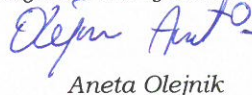 Olejnik Aneta
Aneta Olejnik